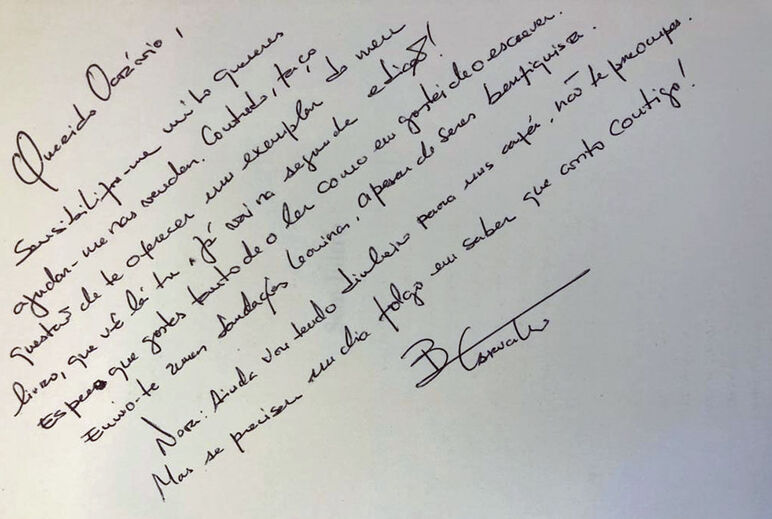 Querido Octávio,
Sensibilizou-me muito quereres
ajudar-me nas vendas. Contudo, faço
questão de te oferecer um exemplar do meu
livro, que vê lá tu, já vai na segunda edição!
Espero que gostes tanto de o ler como eu gostei de o escrever.
Envio-te umas saudações leoninas, apesar de seres benfiquista.
Nota: Ainda vou tendo dinheiro para uns cafés, não te preocupes.
Mas se precisar um dia folgo em saber que conto contigo!
B Carvalho